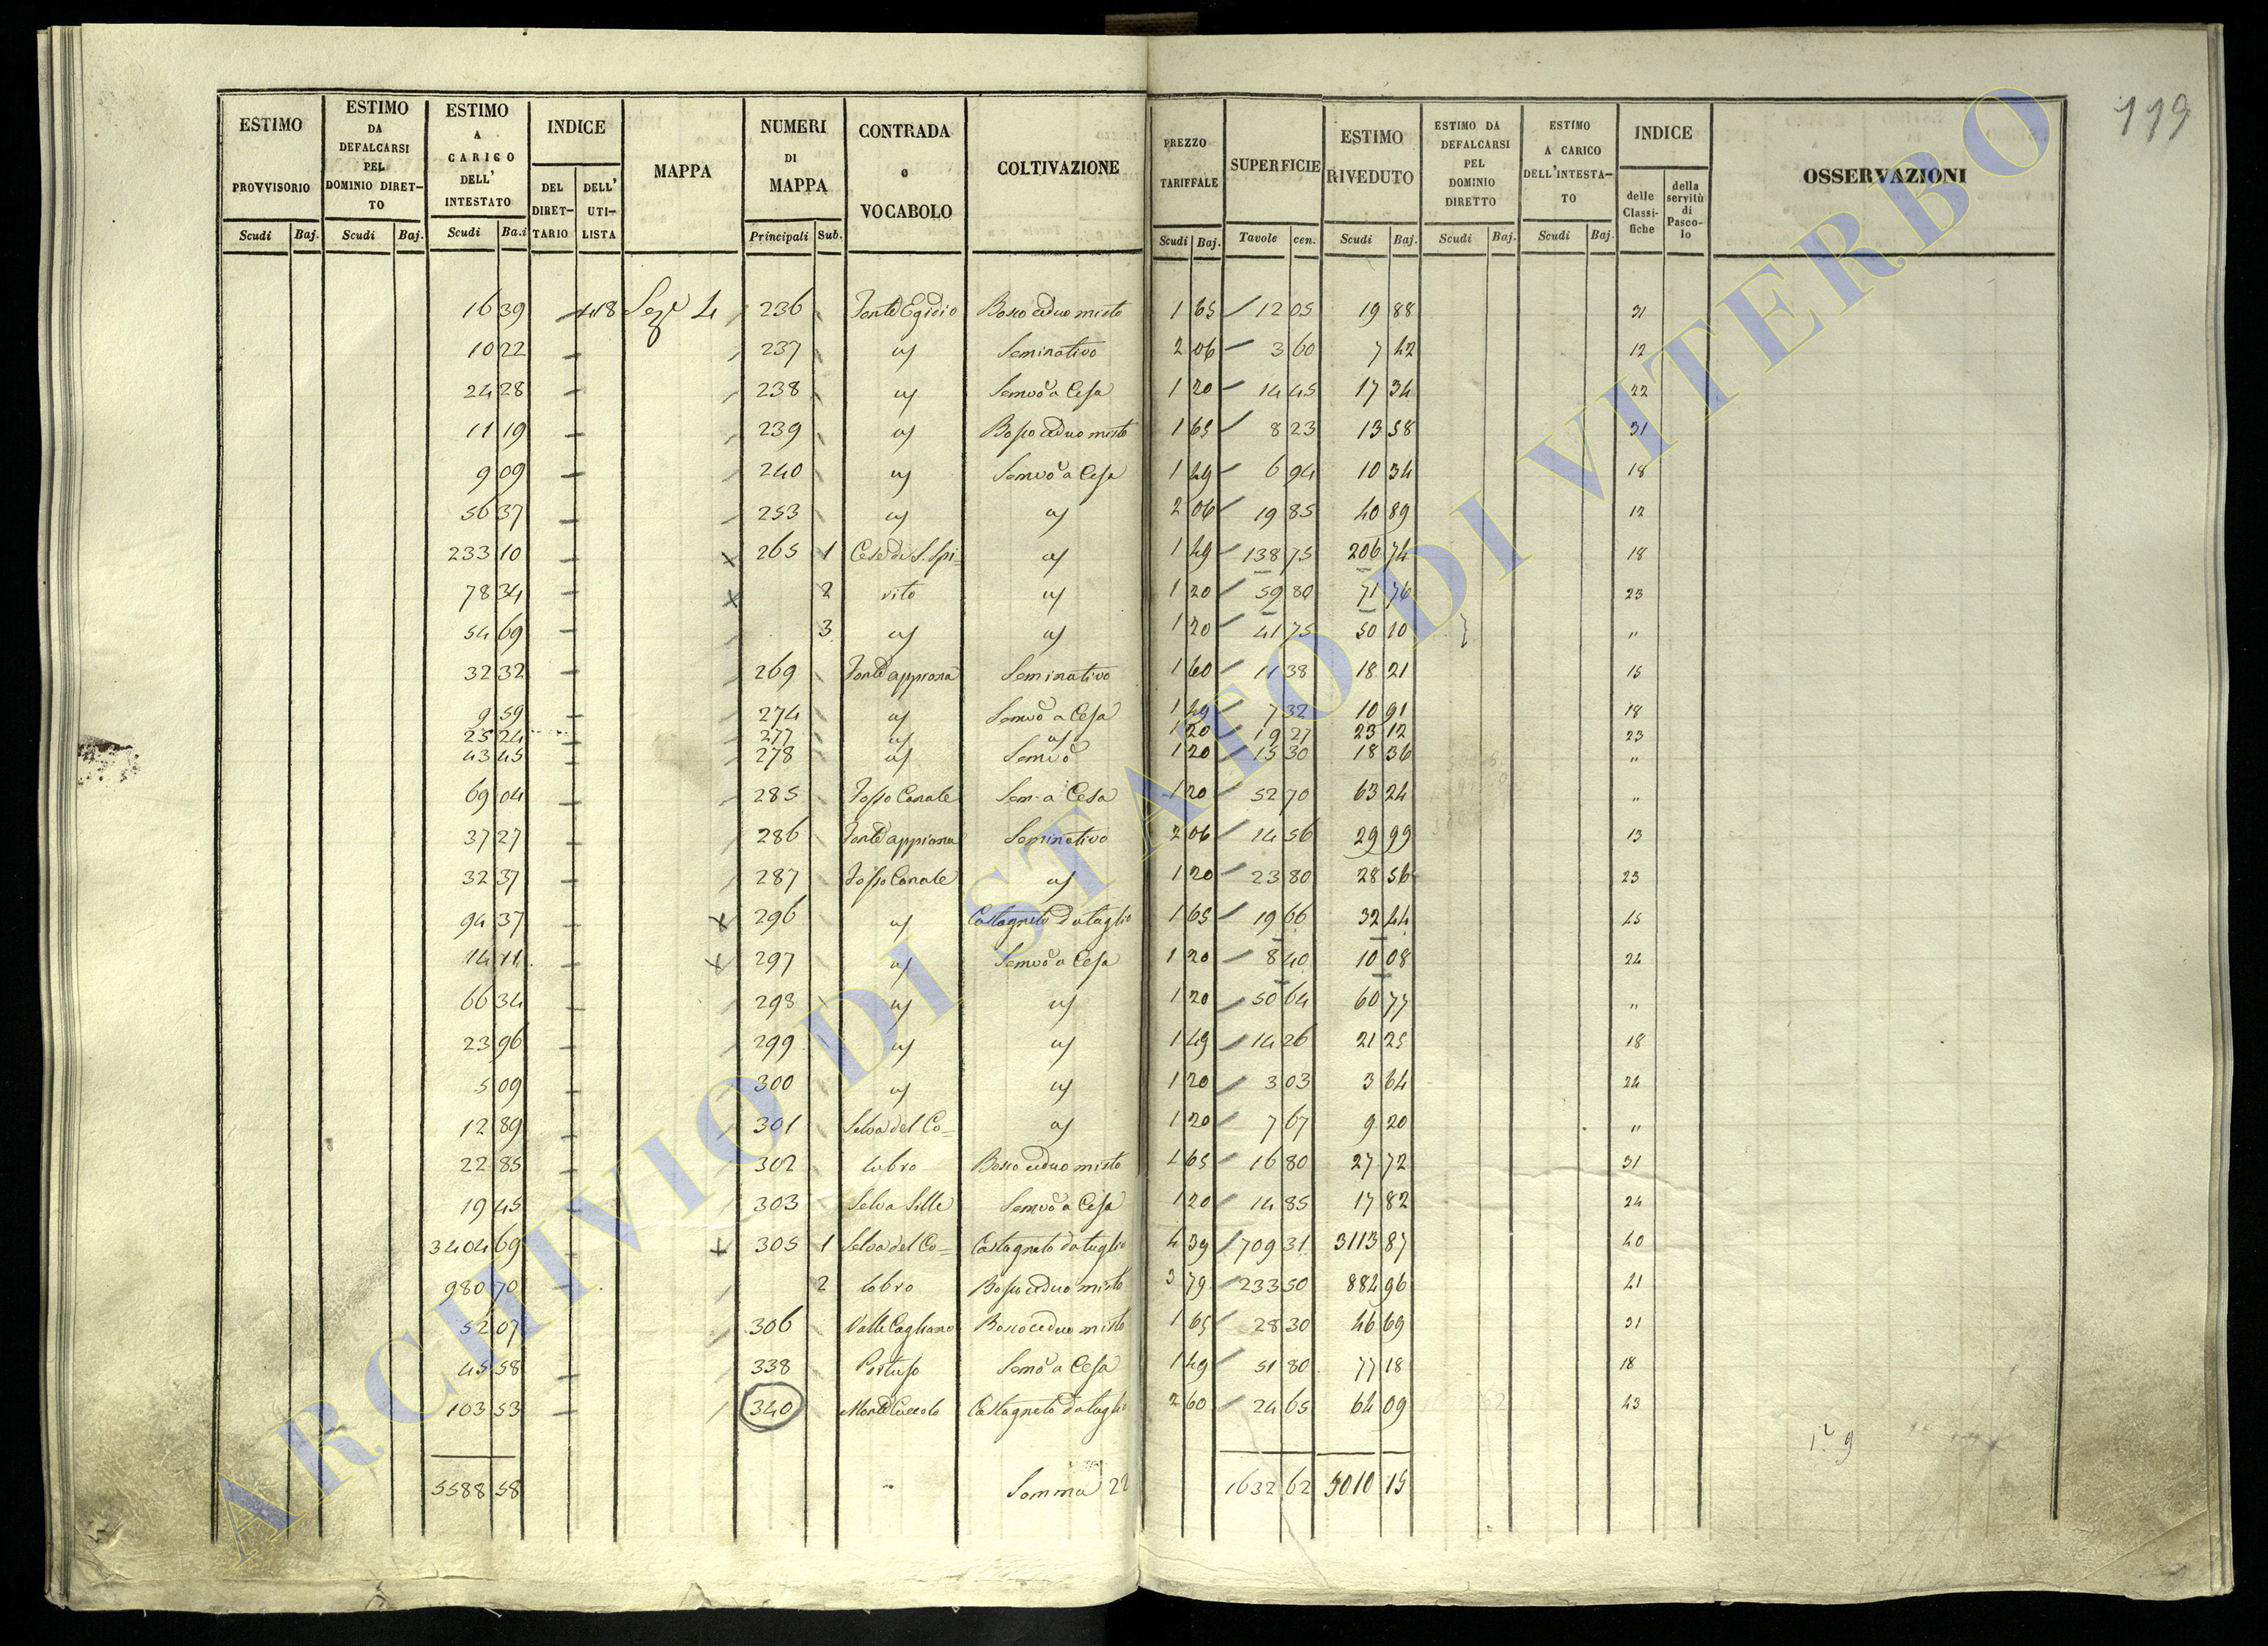 119
ESTIMO PROVVISORIO | ESTIMO DA DEFALCARSI PEL DOMINIO DIRETTO | ESTIMO A CARICO DELL' INTESTATO | INDICE | MAPPA | NUMERI DI MAPPA | CONTRADA o VOCABOLO | COLTIVAZIONE | PREZZO TARIFFALE | SUPERFICIE | ESTIMO RIVEDUTO | ESTIMO DA DEFALCARSI PEL DOMINIO DIRETTO | ESTIMO A CARICO DELL'INTESTATO | INDICE | OSSERVAZIONI
DEL DIRETTARIO | DELL' UTILISTA | delle Classifiche | della servitù di Pascolo
Scudi | Baj. | Scudi | Baj. | Scudi | Ba.i | Principali | Sub. | Scudi | Baj. | Tavole | cen. | Scudi | Baj. | Scudi | Baj. | Scudi | Baj.
16 39 | 418 | Sez. 4 | 236 | Fonte Egidio | Bosco ceduo misto | 1 65 | 12 05 | 19 88 | 31
10 22 | 237 | " | Seminativo | 2 06 | 3 60 | 7 42 | 12
24 28 | 238 | " | Semvo a Cesa | 1 20 | 14 45 | 17 34 | 22
11 19 | 239 | " | Bosco ceduo misto | 1 65 | 8 23 | 13 58 | 31
9 09 | 240 | " | Semvo a Cesa | 1 49 | 6 94 | 10 34 | 18
56 37 | 253 | " | " | 2 06 | 19 85 | 40 89 | 12
233 10 | 265 | 1 | Cese di S. Spi= | " | 1 49 | 138 75 | 206 74 | 18
78 34 | 2 | rito | " | 1 20 | 59 80 | 71 76 | 23
54 69 | 3 | " | " | 1 20 | 41 75 | 50 10 | "
32 32 | 269 | Fonte appiana | Seminativo | 1 60 | 11 38 | 18 21 | 15
9 59 | 274 | " | Semvo a Cesa | 1 49 | 7 32 | 10 91 | 18
25 24 | 277 | " | " | 1 20 | 19 27 | 23 12 | 23
43 45 | 278 | " | Semvo | 1 20 | 15 30 | 18 36 | "
69 04 | 285 | Fosso Canale | Sem. a Cesa | 1 20 | 52 70 | 63 24 | "
37 27 | 286 | Fonte appiana | Seminativo | 2 06 | 14 56 | 29 99 | 13
32 37 | 287 | Fosso Canale | " | 1 20 | 23 80 | 28 56 | 23
94 37 | 296 | " | Castagneto da taglio | 1 65 | 19 66 | 32 44 | 45
14 11 | 297 | " | Semvo a Cesa | 1 20 | 8 40 | 10 08 | 24
66 34 | 298 | " | " | 1 20 | 50 64 | 60 77 | "
23 96 | 299 | " | " | 1 49 | 14 26 | 21 25 | 18
5 09 | 300 | " | " | 1 20 | 3 03 | 3 64 | 24
12 89 | 301 | Selva del Co= | " | 1 20 | 7 67 | 9 20 | "
22 85 | 302 | lubro | Bosco ceduo misto | 1 65 | 16 80 | 27 72 | 31
19 45 | 303 | Selva Sille | Semvo a Cesa | 1 20 | 14 85 | 17 82 | 24
3404 69 | 305 | 1 | Selva del Co= | Castagneto da taglio | 4 39 | 709 31 | 3113 87 | 40
980 70 | 2 | lobro | Bosco ceduo misto | 3 79 | 233 50 | 884 96 | 41
52 07 | 306 | Valle Cagliano | Bosco ceduo misto | 1 65 | 28 30 | 46 69 | 31
45 58 | 338 | Pertuso | Semo a Cesa | 1 49 | 51 80 | 77 18 | 18
103 53 | 340 | Monte Cuccolo | Castagneto da taglio | 2 60 | 24 65 | 64 09 | 43
5588 58 | Somma 22 | 1632 62 | 5010 15
ARCHIVIO DI STATO DI VITERBO